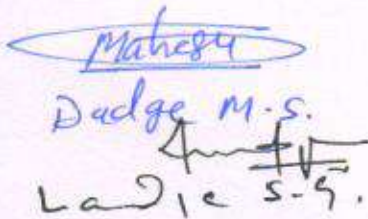 Mahesh
Dadge M.S.
Landge S.G.